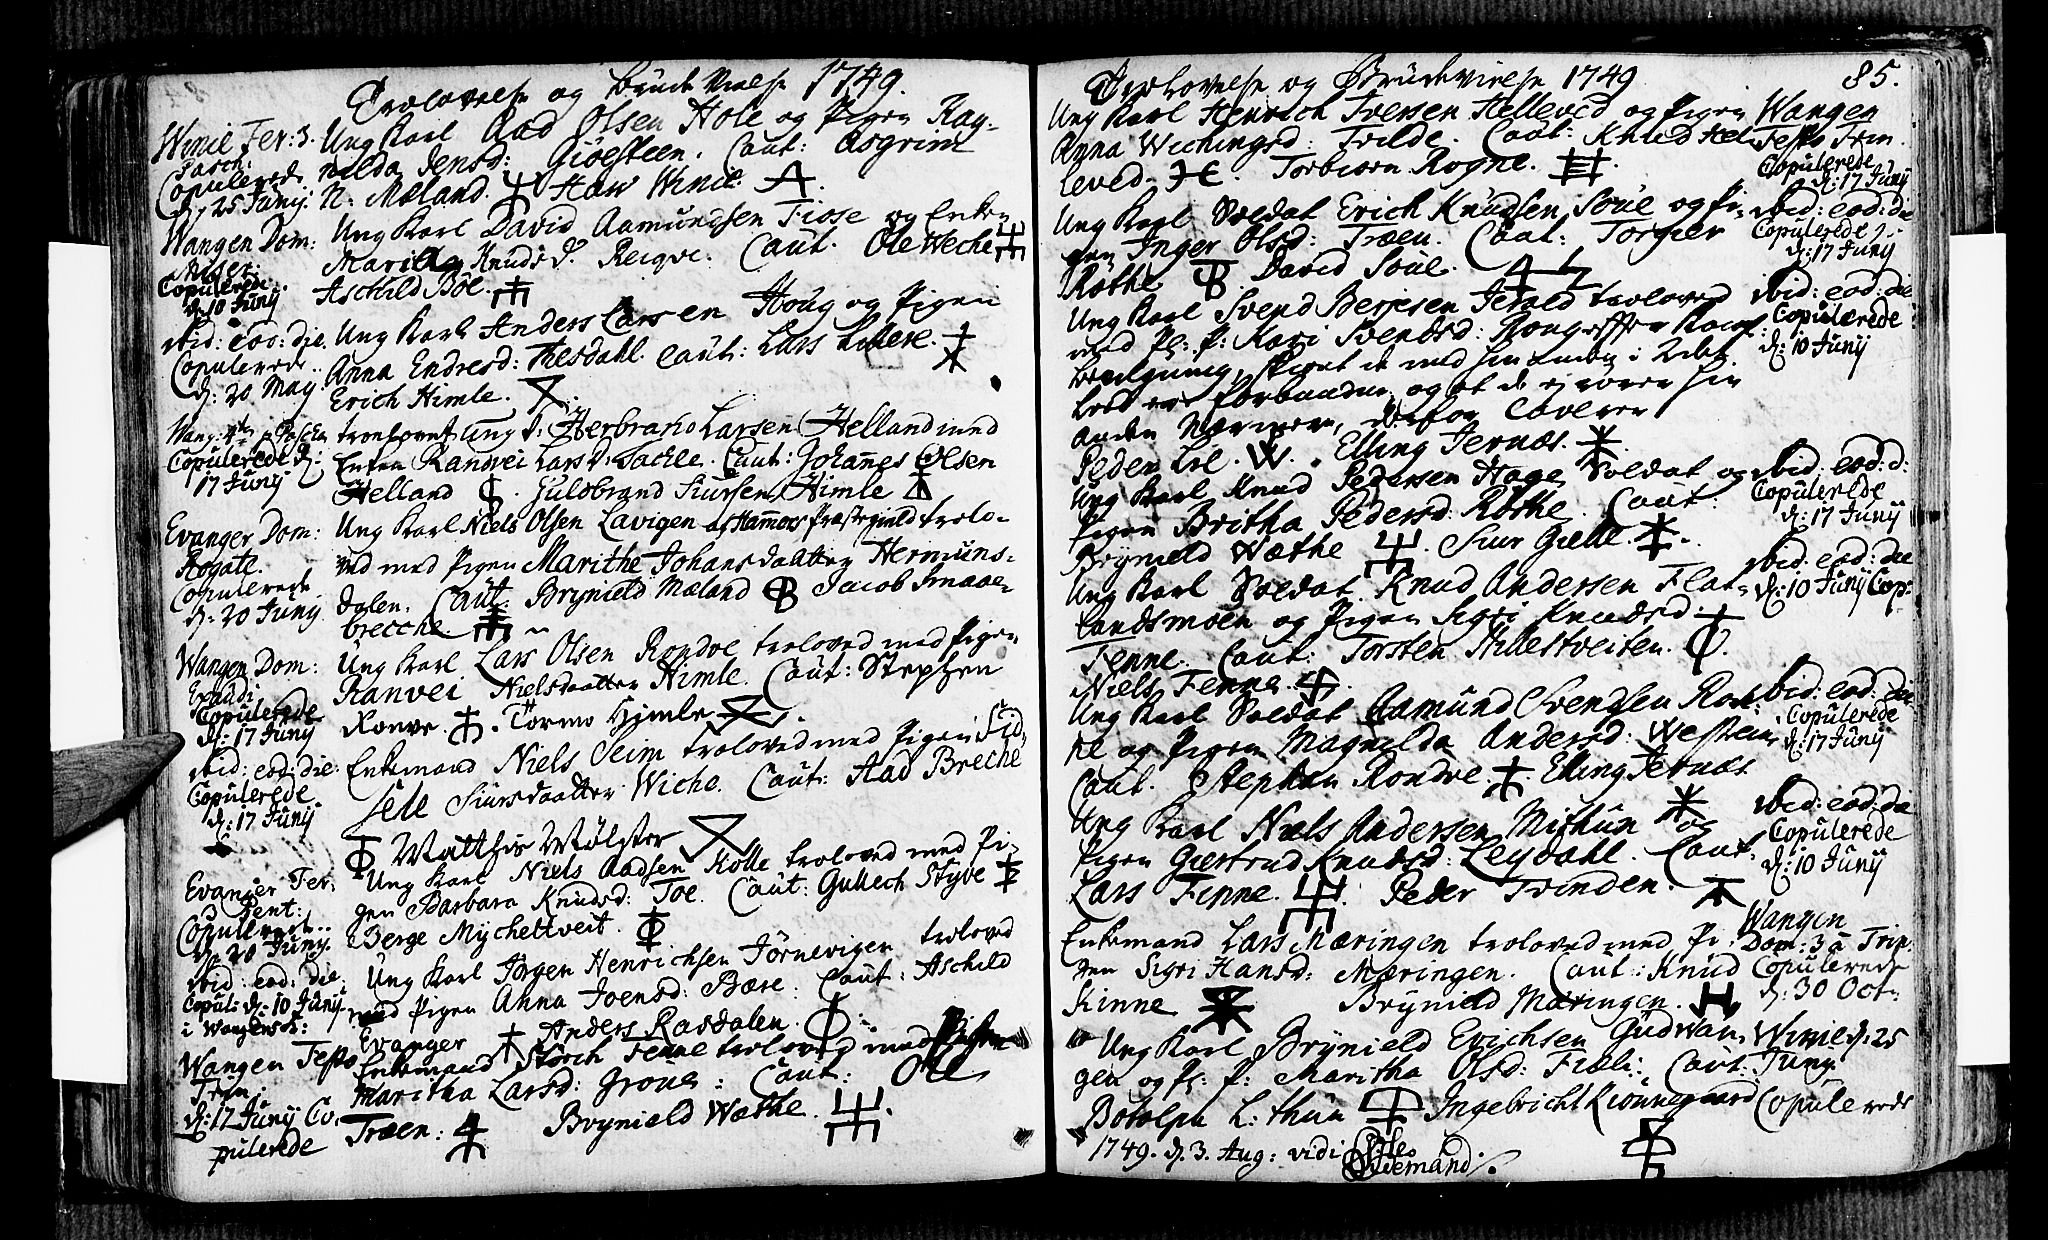 Trolovelse og Brude Vielse 1749.
Winie Fer: 3. Pasch:
Copulerede
d: 25 Junij.
Ung Karl Aad Olsen Hole og Pigen Rag-
nilda Jensd: Giøesteen. Caut: Asgrim
N: Mæland. Haw Winie.
Wangen Dom:
Miser:
Copulerede
d: 10 Junij
Ung Karl David Aamundsen Fiose og Enken
Marita Knudsd. Recqve. Caut. Ole Weche
Aschild Böe.
ibid: eod: die.
Copulerede
d: 20 May.
Ung Karl Anders Larsen Houg og Pigen
Anna Endresd: Thesdahl. Caut: Lars Lillere.
Erich Himle.
Wang:
Copulerede d:
17 Junij
troelovet Ung K: Herbrand Larsen Helland med
Enken Ranvei Larsd: Sachse. Caut: Johannes Olsen
Helland Guldbrand Siursen Himle
Evanger Dom:
Rogate.
Copulerede
d: 20 Junij
Ung Karl Niels Olsen Lavigen af Hammers Præstegield trolo-
ved med Pigen Marithe Johansdaatter Hermuns-
dalen. Caut. Brynield Mæland Jacob Smaae-
brecche.
Wangen Dom:
Exaudi
Copulerede
d: 17 Junij
Ung Karl Lars Olsen Rondve troloved med Pigen
Ranvei Nielsdaatter Himle. Caut: Stephen
Ronve. Tormo Himle
ibid: eod: die:
Copulerede
d: 17 Junij
Enkemand Niels Seim troloved med Pigen Sid-
sele Siursdaatter Wiche. Caut: Aad Breche
Matthis Mølster
Evanger Fer:
3 Pent:
Copulerede
d: 20 Junij.
Ung Karl Niels Aadsen Holle troloved med Pi-
gen Barbara Knudsd: Toe. Caut: Gullech Styve
Berge Mycheltveit.
ibid: eod: die.
Copul: d: 10 Junij
i Wangensk:
Ung Karl Jörgen Henrichsen Jörnevigen troloved
med Pigen Anna Joensd: Bære. Caut: Aschild
Evanger Anders Rasdalen.
Wangen Festo
Trin:
d: 17 Junij Co-
pulerede
Enkemand Storch Fenne troloved med Pigen
Maritha Larsd: Groue: Caut: Ole
Træen: Brynield Wæthe.
Trolovelse og Brudevielse 1749
85.
Ung Karl Henrich Iversen Helleved og Pigen
Anna Wechingsd: Trilde. Caut: Knud Hel-
leved. Torbiörn Rogne.
Wangen
Festo Trin.
Copulerede
d: 17 Junij
Ung Karl Soldat Erich Knudsen Soue og Pi-
gen Inger Olsd: Træen. Caut: Torgier
Røthe David Soue.
ibid: eod: die
Copulerede
d: 17 Junij
Ung Karl Svend Berjesen Jerald troloved
med P: P: Kari Svendsd: Rong efter Kongl:
bevilgning, skiönt de med hinanden i 2det
Led ere forbundne, og at de ej vare hin
anden Nærmere, derfor Caverer
Peder Lil. W. Elling Jernæs.
ibid: eod: die
Copulærede
d: 10 Junij
Ung Karl Knud Pedersen Hage Soldat og
Pigen Britha Pedersd: Röthe. Caut.
Brynield Wæthe Siur Gielle.
ibid: eod: d:
Copulerede
d: 17 Junij
Ung Karl Soldat Knud Andersen Flat-
landsmoen og Pigen Sigri Knudsd:
Fenne. Caut: Torsten Hillestveiten.
Niels Fenne.
ibid: eod: die
d: 10 Junij Cop:
Ung Karl Soldat Aamund Svendsen Rok-
ne og Pigen Magnilda Andersd: Westrein
Caut. Stephen Rondve. Elling Jernæs
ibid: eod: die
Copulerede
d: 17 Junij
Ung Karl Niels Andersen Mithun og
Pigen Giertrud Knudsd: Leydahl. Caut.
Lars Fenne. Peder Trinden.
ibid: eod: die
Copulerede
d: 10 Junij
Enkemand Lars Mæringen troloved med Pi-
gen Sigri Hansd: Mæringen. Caut: Knud
Kinne Brynield Mæringen.
Wangen
Dom: 3 a Trin.
Copulerede
d: 30 Oct:
Ung Karl Brynield Erichsen Gudvan-
gen og P: P: Maritha Olsd: Fieli: Caut:
Botolph L: Thun Ingebricht Kionnegaard
Winie d: 25
Junij
Copulerede
1749. d. 3. Aug: vidi